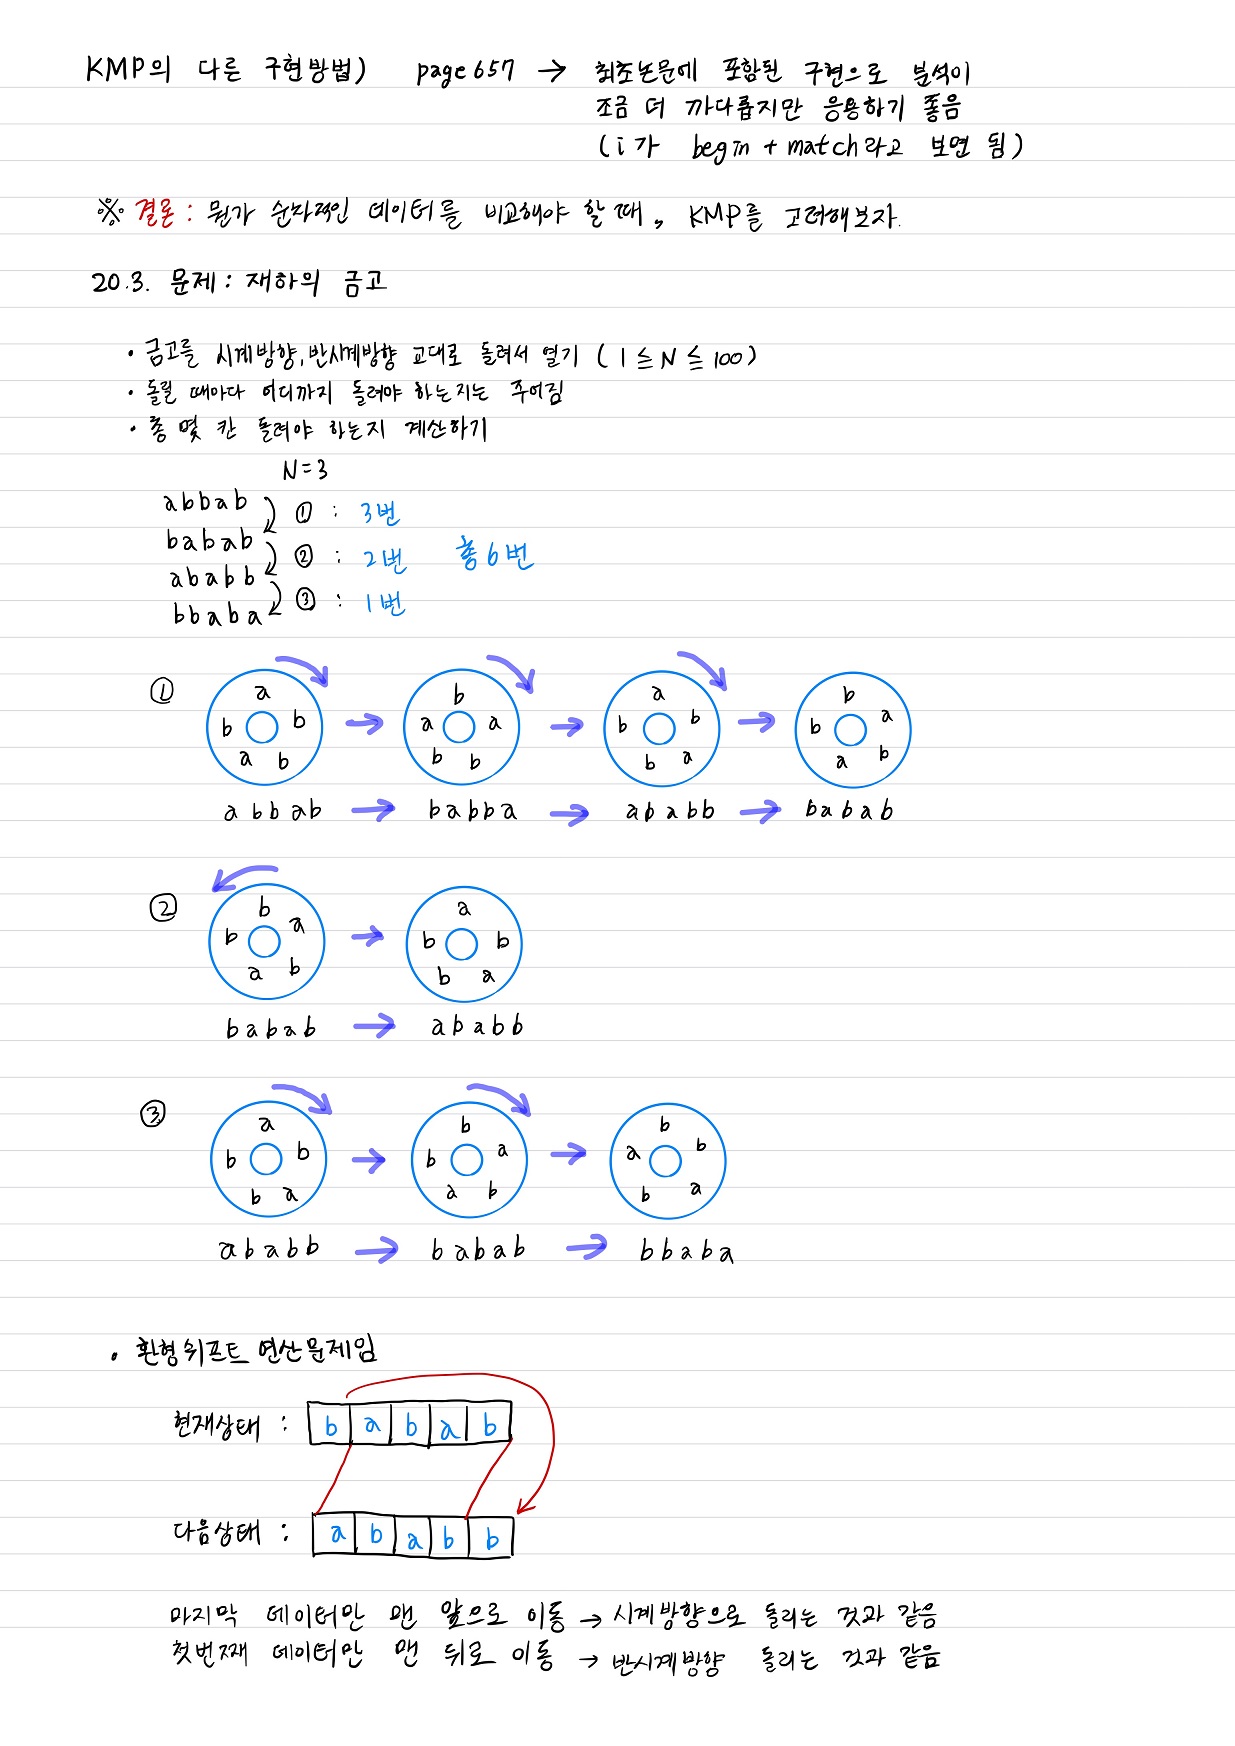 KMP의 다른 구현방법) page 657 → 최초논문에 포함된 구현으로 분석이
조금 더 까다롭지만 응용하기 좋음
(i가 begin + match라고 보면 됨)
※ 결론 : 뭔가 순차적인 데이터를 비교해야 할 때, KMP를 고려해보자.
20.3. 문제 : 재하의 금고
• 금고를 시계방향, 반시계방향 교대로 돌려서 열기 ( 1 ≤ N ≤ 100 )
• 돌릴 때마다 어디까지 돌려야 하는지는 주어짐
• 총 몇 칸 돌려야 하는지 계산하기
N=3
abbab
① : 3번
babab
② : 2번 총 6번
ababb
③ : 1번
bbaba
①
a b b a b
b a a b b
a b b b a
b a b b a
abbab → babba → ababb → babab
②
b a b a b
a b b b a
babab → ababb
③
a b b b a
b a b a b
b a b b a
ababb → babab → bbaba
• 환형 쉬프트 연산문제임
현재상태 : b a b a b
다음상태 : a b a b b
마지막 데이터만 맨 앞으로 이동 → 시계방향으로 돌리는 것과 같음
첫번째 데이터만 맨 뒤로 이동 → 반시계방향 돌리는 것과 같음